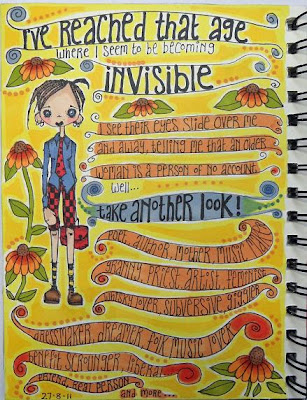 I've REACHED THAT AGE
where I seem to be becoming
INVISIBLE
I see their eyes slide over me
and away, telling me that an older
woman is a person of no account
well...
take another look!
rebel, author, mother, music
priest artist, feminist
lover, subversive giggler
dreamer, folk music lover
benefit scrounger, liberal
friend, real person
27-8-11
and more...